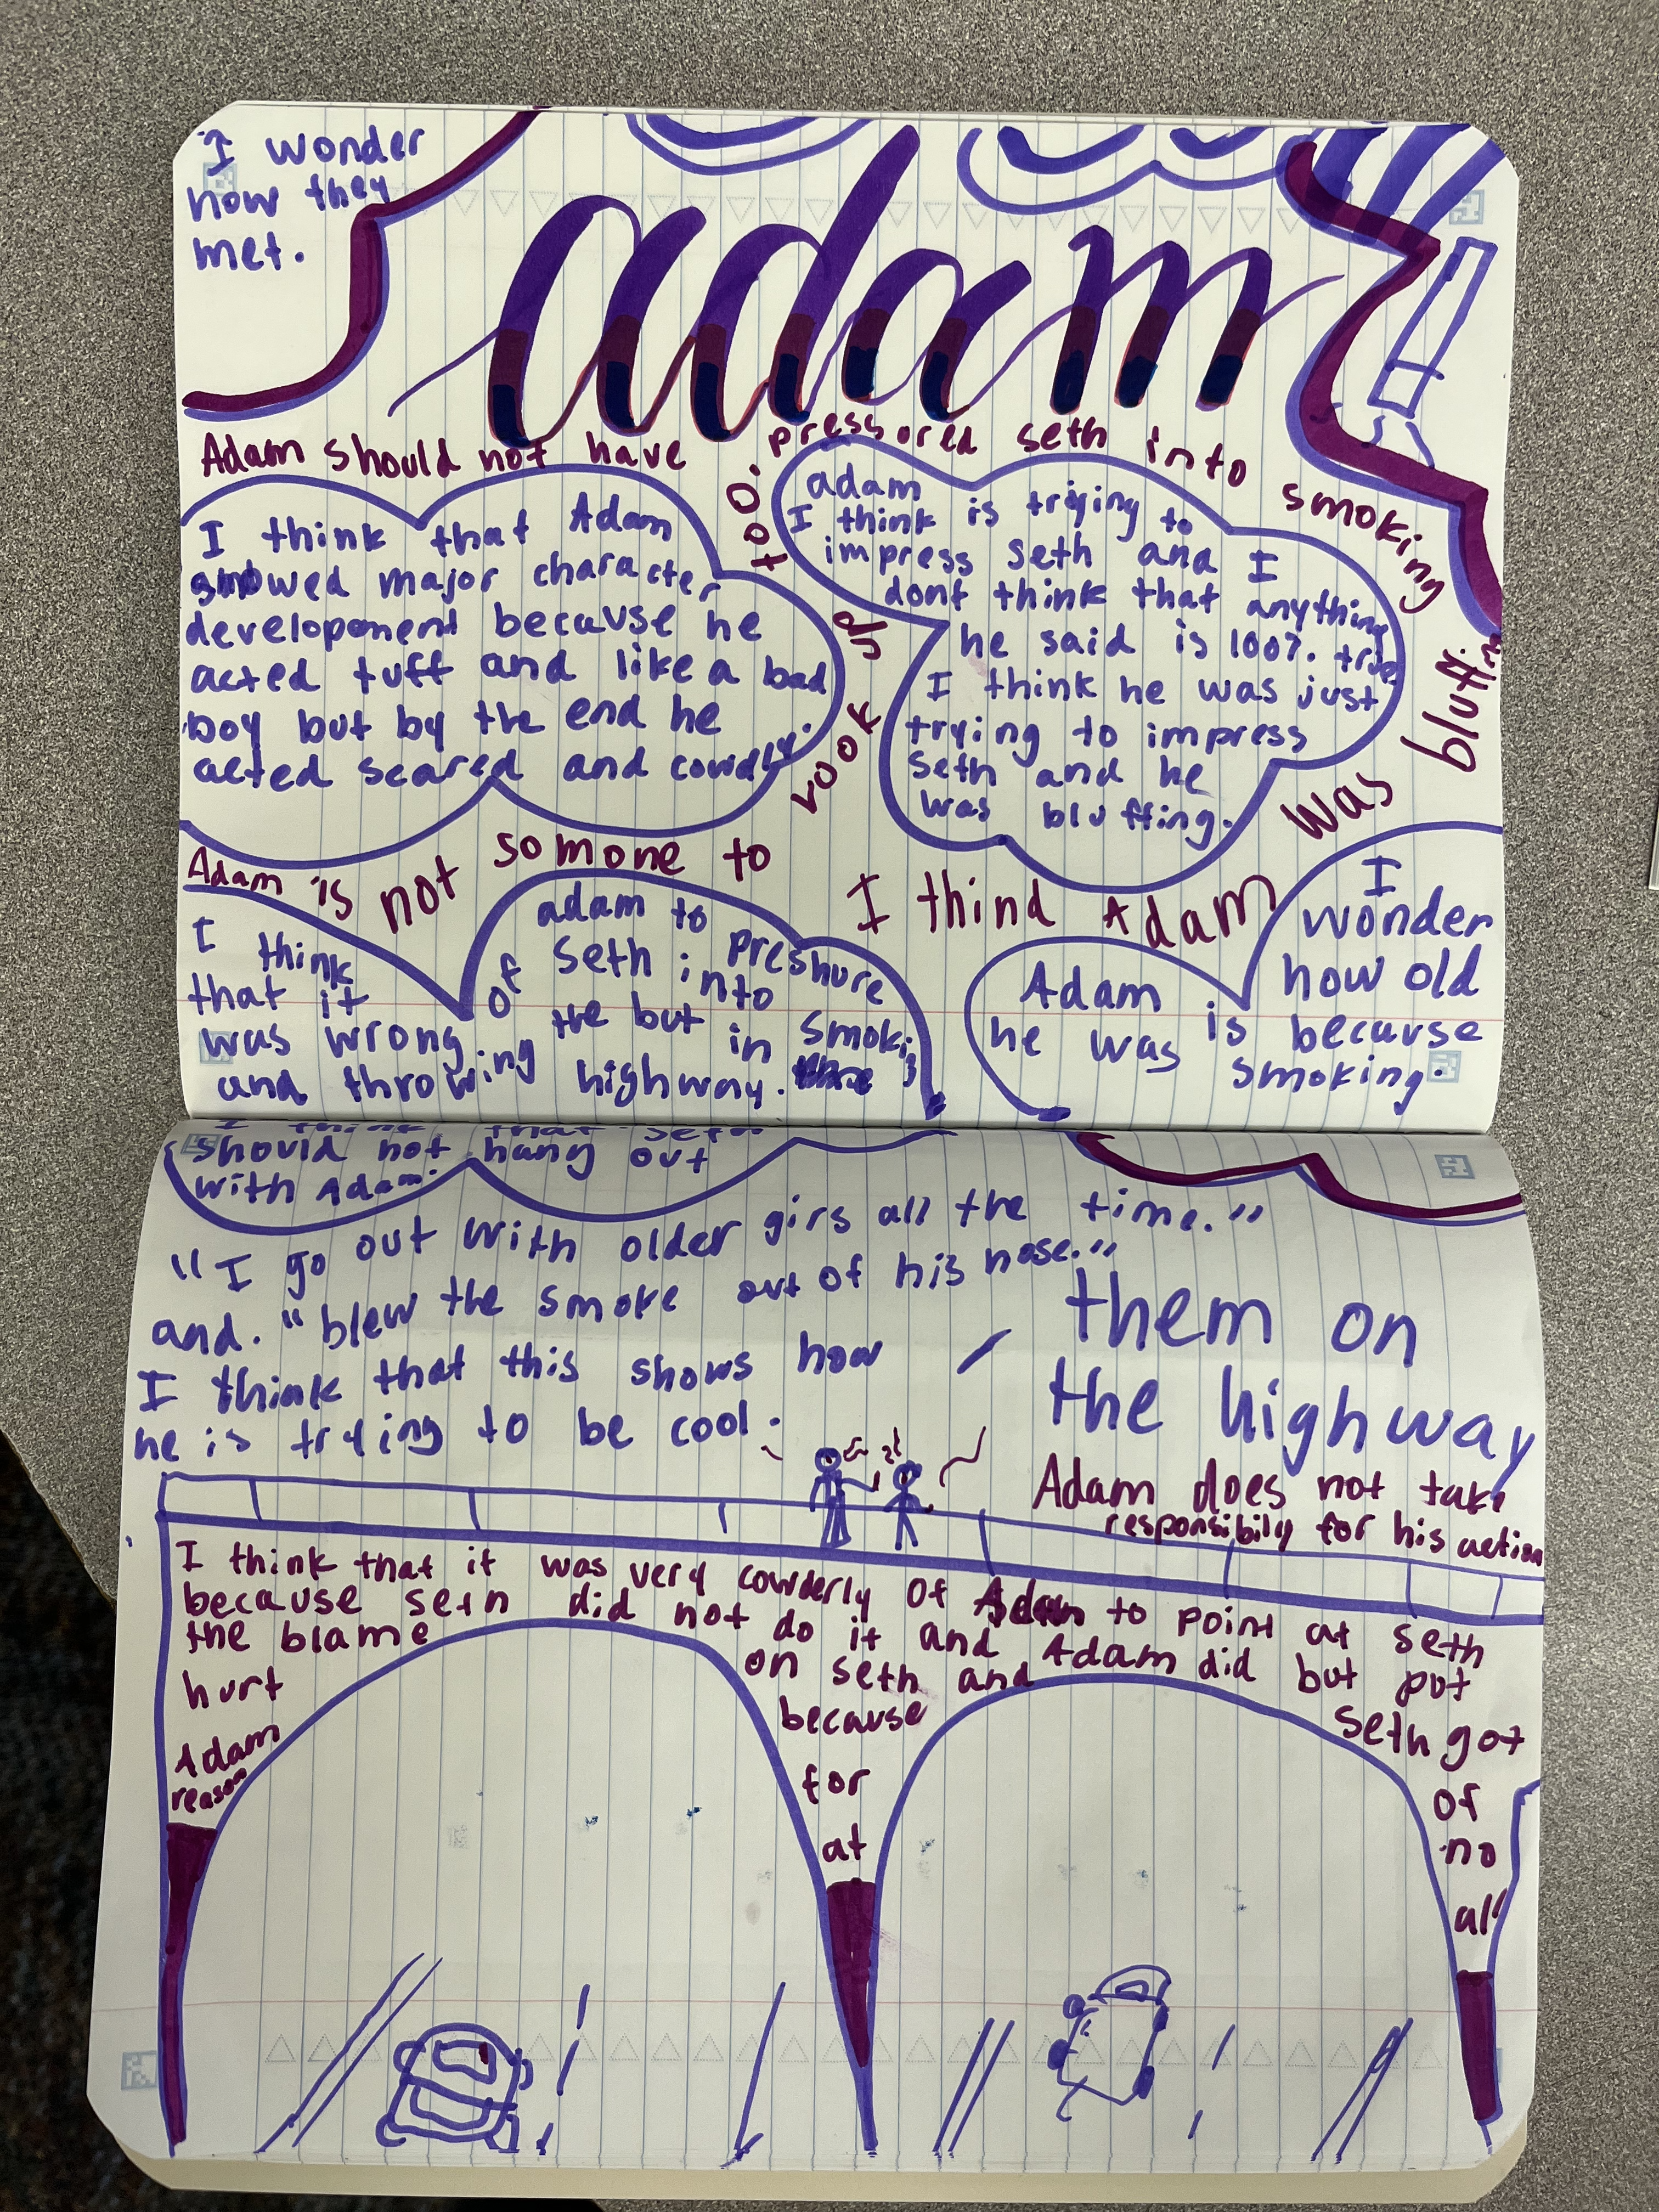 I wonder
how they
met.
adam
Adam should not have pressored seth into smoking
too.
I think that Adam
showed major character
development because he
acted tuff and like a bad
boy but by the end he
acted scared and
adam
I think is triying to
impress Seth and I
dont think that anything
he said is 100%. true
I think he was just
trying to impress
Seth and he
was bluffing.
Adam is not somone to rook up
I thind Adam was bluffing
I think
that it
was wrong of adam to
Seth into preshure
and throwing the but in smoking
highway.
I
wonder
how old
Adam is because
he was smoking.
I think that Seth
should not hang out
with Adam.
"I go out with older girs all the time."
and. "blew the smoke out of his nose."
I think that this shows how
he is trying to be cool.
them on
the highway
Adam does not take
responsibily for his action
I think that it was very cowderly of Adam to point at seth
because seth did not do it and Adam did but put
the blame on seth and seth got
hurt because of
Adam for no
reason at all